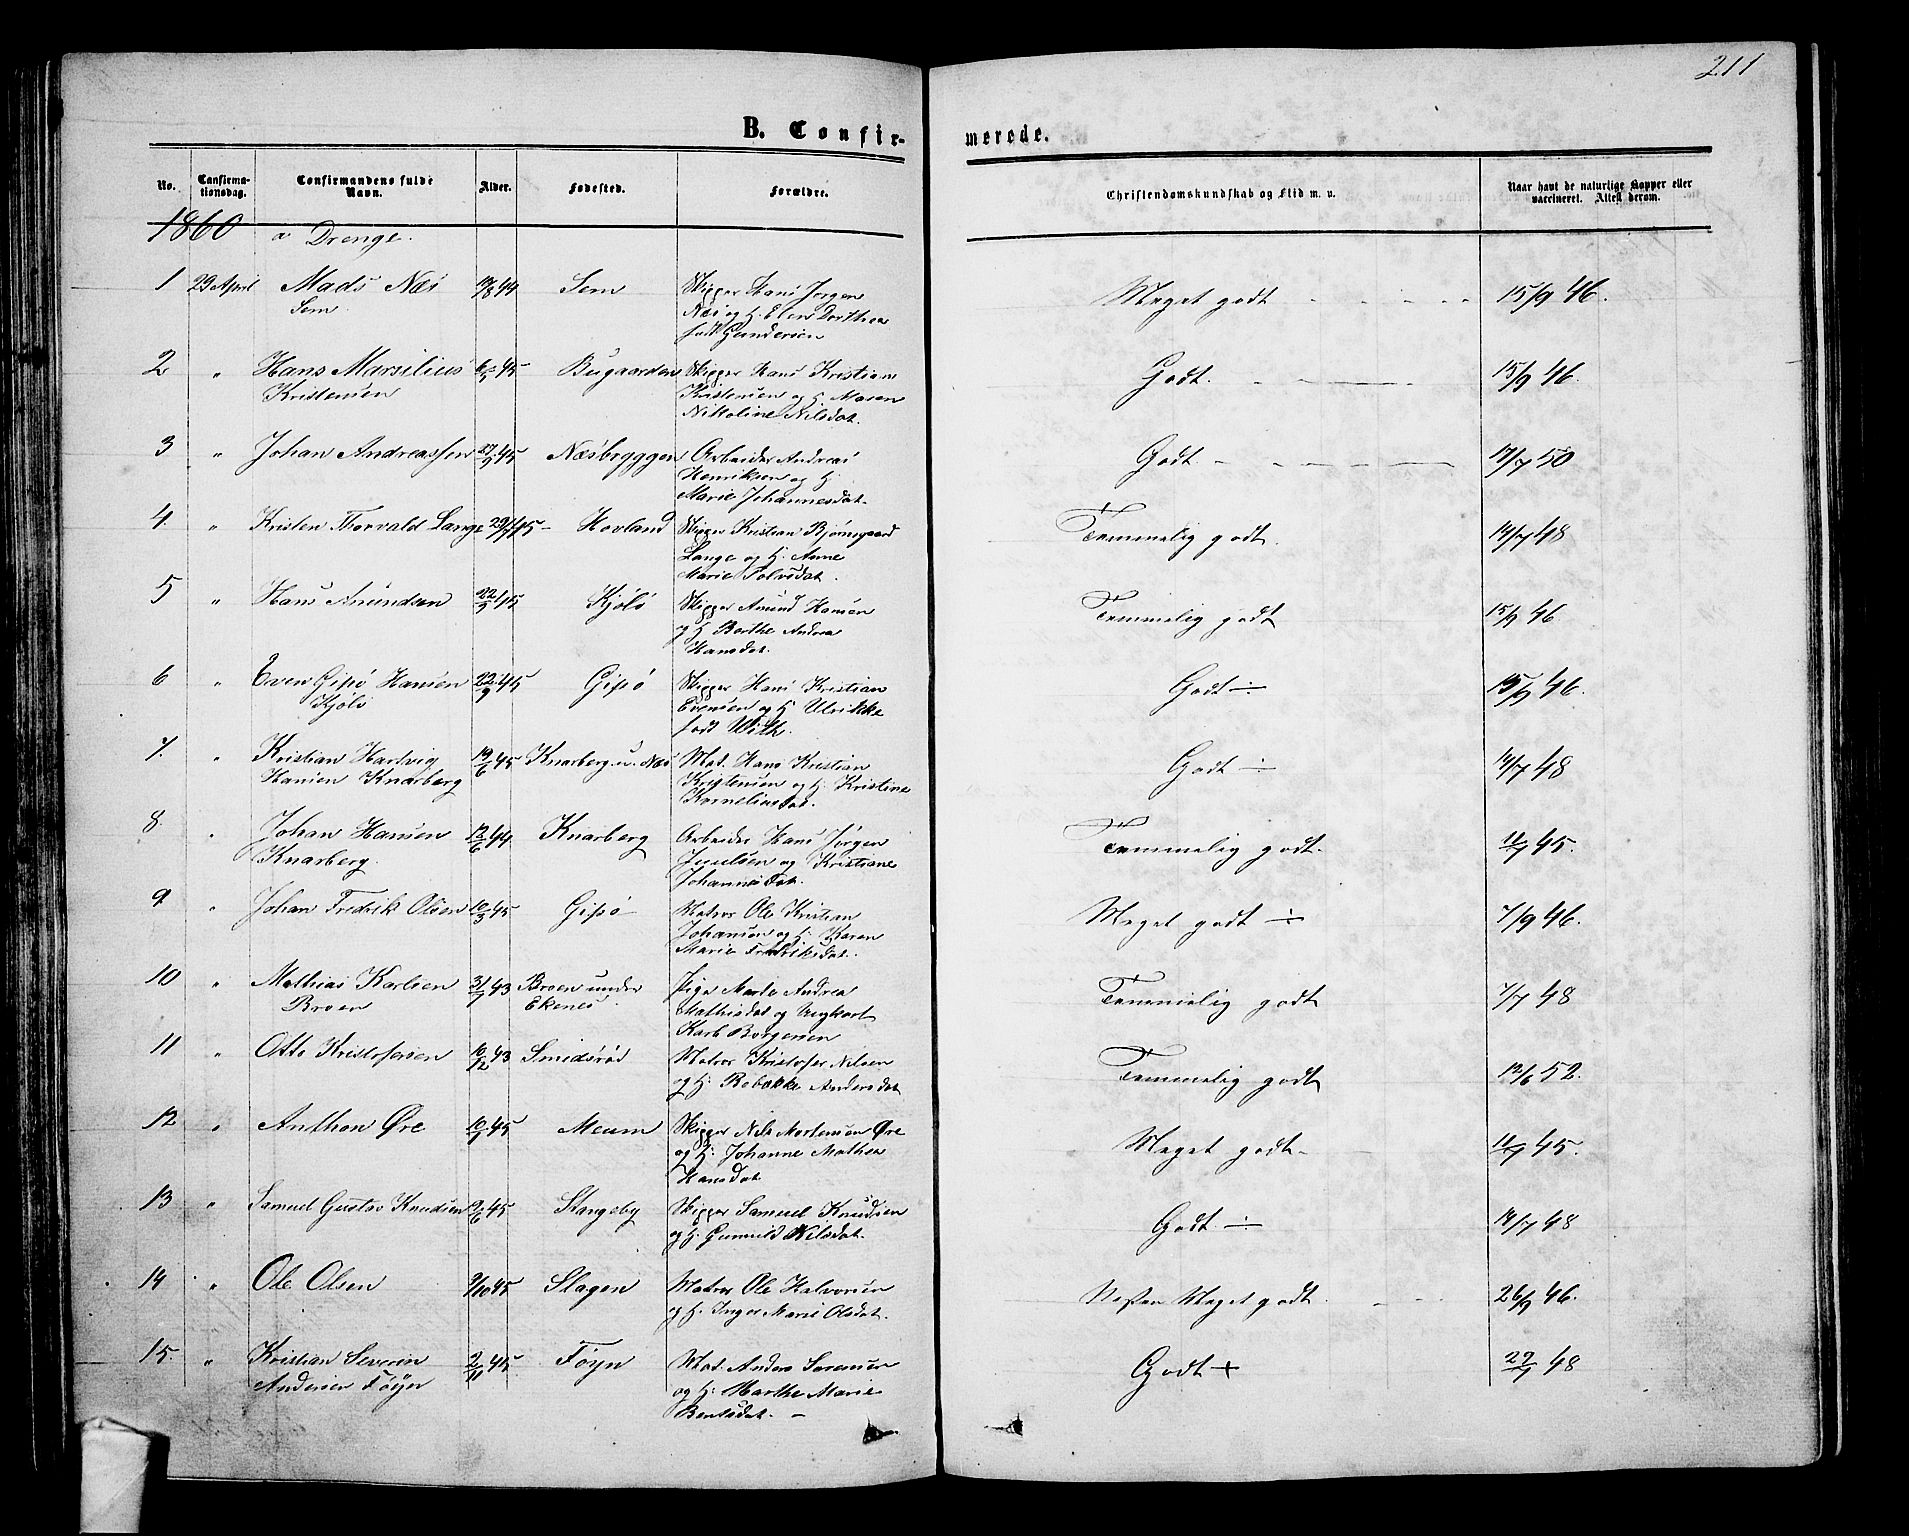 211
B. Confir-
merede.
No.
Confirma-
tionsdag.
Confirmandens fulde
Navn.
Alder.
Fødested.
Forældre.
Christendomskundskab og Flid m. v.
Naar havt de naturlige Kopper eller
vaccineret. Attest derom.
1860
a Drenge.
1 29 April Mads Næs 44 Sem Skipper Hans Jørgen Meget godt 15/9 46.
Sem. Næs og H. Elen Dorthea
født Gundersen
2 " Hans Marsilius 45 Bugaarden Skipper Hans Kristian Godt. 15/9 46.
Kristensen Kristensen og H. Maren
Nikoline Nilsdat.
3 " Johan Andreassen 27/9 45 Næsbryggen Arbeider Andreas Godt. 50
Henriksen og H.
Marie Johannesdat.
4. " Kristen Thorvald Lange 45 Hovland Skipper Kristian Bjørnegaard Temmelig godt. 14/7 48
Lange og H. Anne
Marie Tolvsdat.
5 " Hans Anundsen 45 Kjølø Skipper Anund Hansen Temmelig godt 15/9 46
og H. Berthe Andrea
Hansdat.
6 " Even Gipø Hansen 22/9 45 Gipø Skipper Hans Kristian Godt ÷ 15/9 46.
Kjølø Evensen og H. Ulrikke
født With.
7. " Kristian Hartvig 19/6 45 Knarberg u. Næs Mat. Hans Kristian Godt ÷ 14/7 48
Hansen Knarberg Kristensen og H. Kristine
Korneliusdat.
8. " Johan Hansen 12/6 44 Knarberg Arbeider Hans Jørgen Temmelig godt. 11/7 45.
Knarberg. og Kristiane
Johannesdat.
9 " Johan Fredrik Olsen 10/3 45 Gipø Matros Ole Kristian Meget godt ÷ 7/9 46.
Johansen og H. Karen
Marie Fredriksdat.
10 " Mathias Karlsen 31/7 43 Broen under Pige Marte Andrea Temmelig godt 7/7 48
Broen Ekenes. Mathisdat og Ungkarl
Karl Borgersen
11 " Otto Kristofersen 10/12 43 Smidsrød Matros Kristofer Nilsen Temmelig godt 12/6 52.
og H. Rebække Andersdat
12 " Anthon Øre 45 Meum Skipper Nils Mortensen Øre Meget godt. 11/7 45.
og H. Johanne Mathea
Hansdat
13 " Samuel Gustav Knudsen 9/6 45 Stangeby Skipper Samuel Knudsen Godt ÷ 14/7 48
og H. Gunnild Nilsdat.
14 " Ole Olsen 9/10 45 Slagen Matros Ole Halvorsen Næsten Meget godt. 26/9 46.
og H. Inger Marie Olsdat.
15. " Kristian Severin 2/11 45 Føyn Mat. Anders Sørensen Godt + 48
Andersen Føyn og H. Marthe Marie
Bentsdat. —